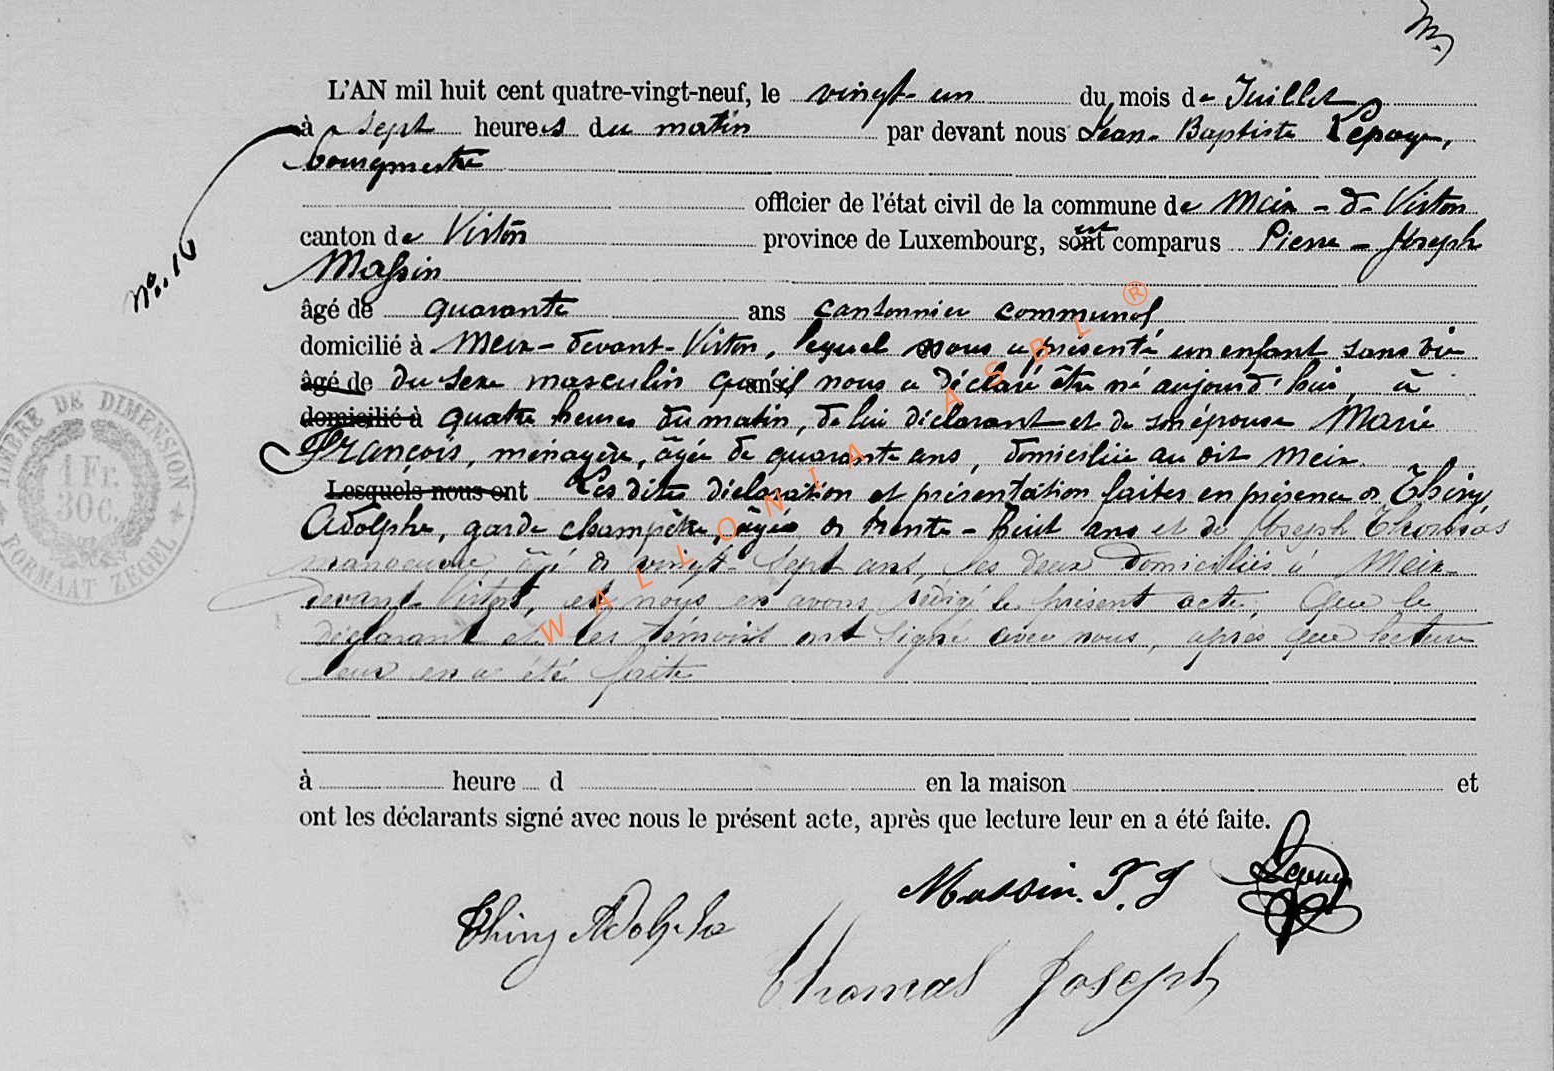 L'AN mil huit cent quatre-vingt-neuf, le vingt-un du mois de Juillet
à sept heures du matin par devant nous Jean-Baptiste Lepage,
bourgmestre
officier de l'état civil de la commune de Meix-dt-Virton
canton de Virton province de Luxembourg, sont est comparus Pierre-Joseph
N° 10
Massin
âgé de quarante ans cantonnier communal
domicilié à Meix-devant-Virton, lequel nous a présenté un enfant sans vie
âgé de du sexe masculin qu'il ans nous a déclaré être né aujourd'hui à
domicilié à quatre heures du matin, de lui déclarant et de son épouse Marie
François, ménagère, âgée de quarante ans, domiciliée au dit Meix.
Lesquels nous ont Les dites déclaration et présentation faites en présence de Thiry
Adolphe, garde champêtre, âgé de trente-huit ans et de Joseph Thomas
manoeuvre, âgé de vingt-sept ans, les deux domiciliés à Meix-
devant-Virton, et nous en avons rédigé le présent acte, que le
déclarant et les témoins ont signé avec nous, après que lecture
leur en a été faite
à heure d en la maison et
ont les déclarants signé avec nous le présent acte, après que lecture leur en a été faite.
Massin. P. J Lepage
Thiry Adolphe
Thomas Joseph
TIMBRE DE DIMENSION
1 Fr.
30c.
FORMAAT ZEGEL
WALLONIA ASBL ®